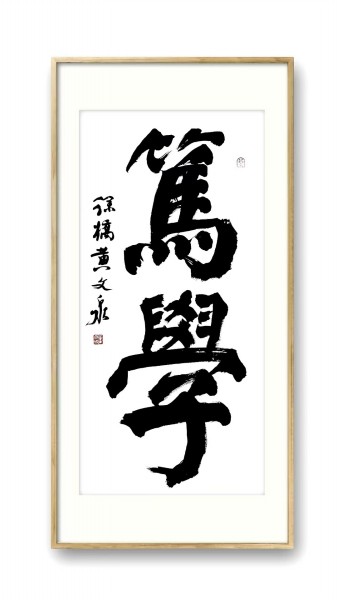 篤學
徐橋黄文泉